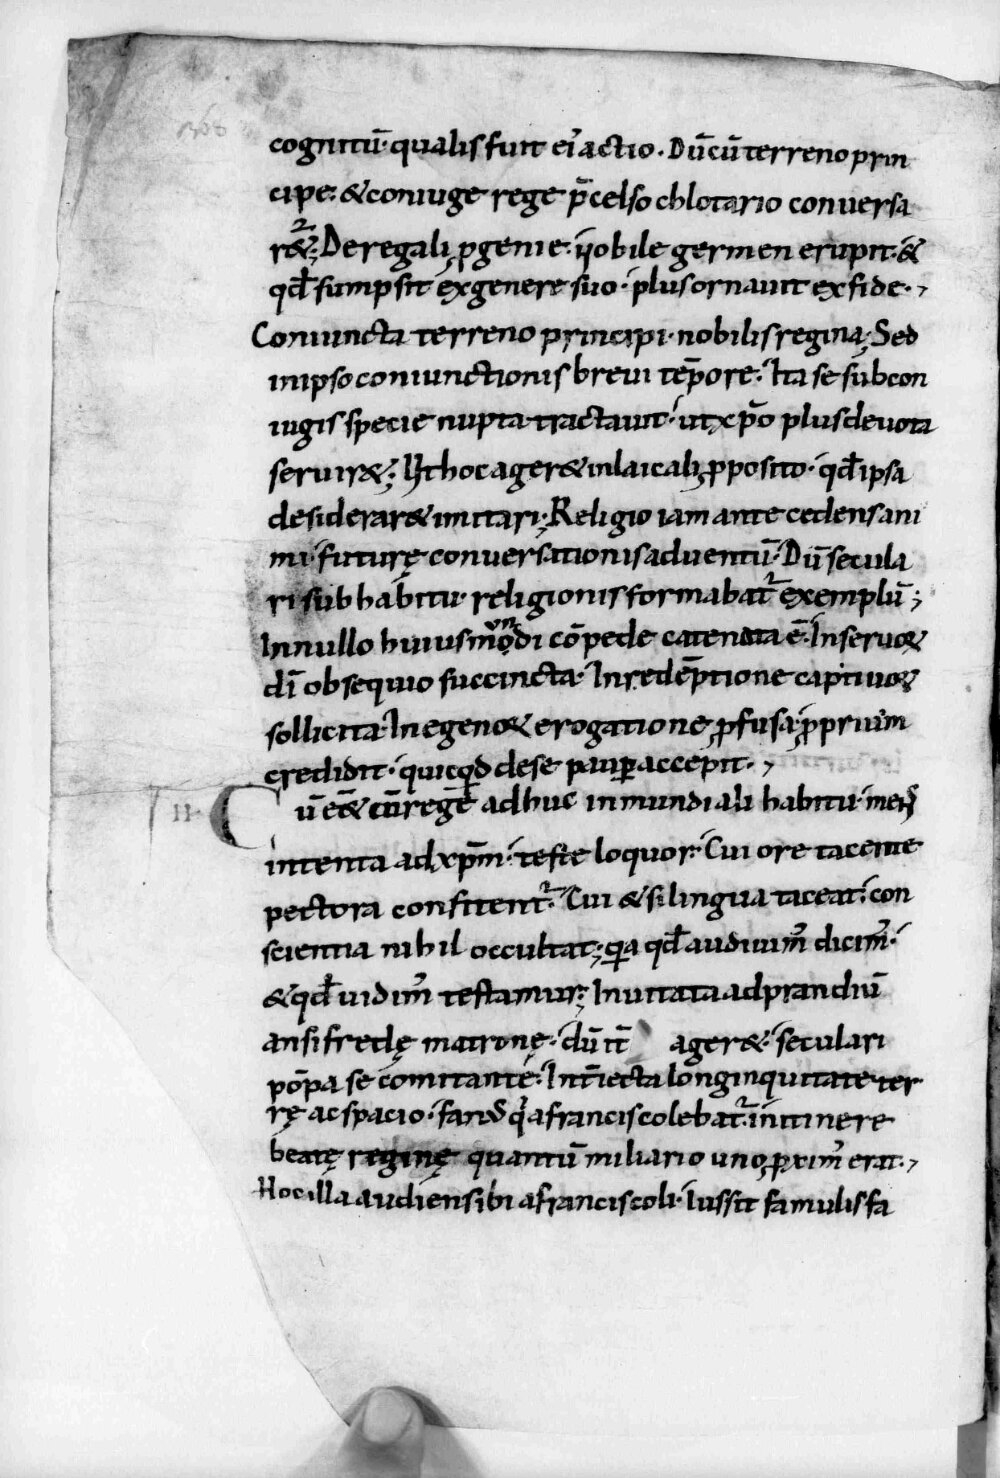 cognitū· qualis fuit ei᾽ actio. Dū cū terreno prin
cipe· & coniuge rege p̄celso chlotario conuersa
r&ur; De regali ꝓgenie· nobile germen erupit· &
qđ sumpsit ex genere suo· plus ornauit ex fide·,
Coniuncta terreno principi· nobilis regina; Sed
in ipso coniunctionis breui tēpore· Ita se sub con
iugis specie nupta tractauit· ut xp̄o plus deuota
seruir&; Et hoc ager& in laicali ꝓposito· qđ ipsa
desiderar& imitari; Religio iam ante cedens ani
mi· futurę conuersationis aduentū· Dū secula
ri sub habitu· religionis formabat᷑ exemplū;
In nullo huius mundi cōpede catenata ē· In seruoꝝ
dī obsequio succincta· In redēptione captiuoꝝ
sollicita· In egenoꝝ erogatione ꝓfusa· ꝓpriū
credidit· quicqd de se pauꝑ accepit·,
II· Cū eā & cū regē adhuc in mundiali habitu· mens
intenta ad xp̄m· teste loquor· Cui ore tacente
pectora confitent᷑· Cui & si lingua taceat· con
scientia nihil occultat; quia qđ audiuim᾽ dicim᾽·
& qđ uidim᾽ testamur; Inuitata ad prandiū
ansifredę matronę· dū it̄ ager&· seculari
pōpa se comitante· Int̄iecta longinquitate ter
rę ac spacio· fanū qđ a francis colebat᷑· in itinere
beatę reginę quantū miliario uno ꝓxim᾽ erat·,
Hoc illa audiens ibi a francis coli· Iussit famulis fa